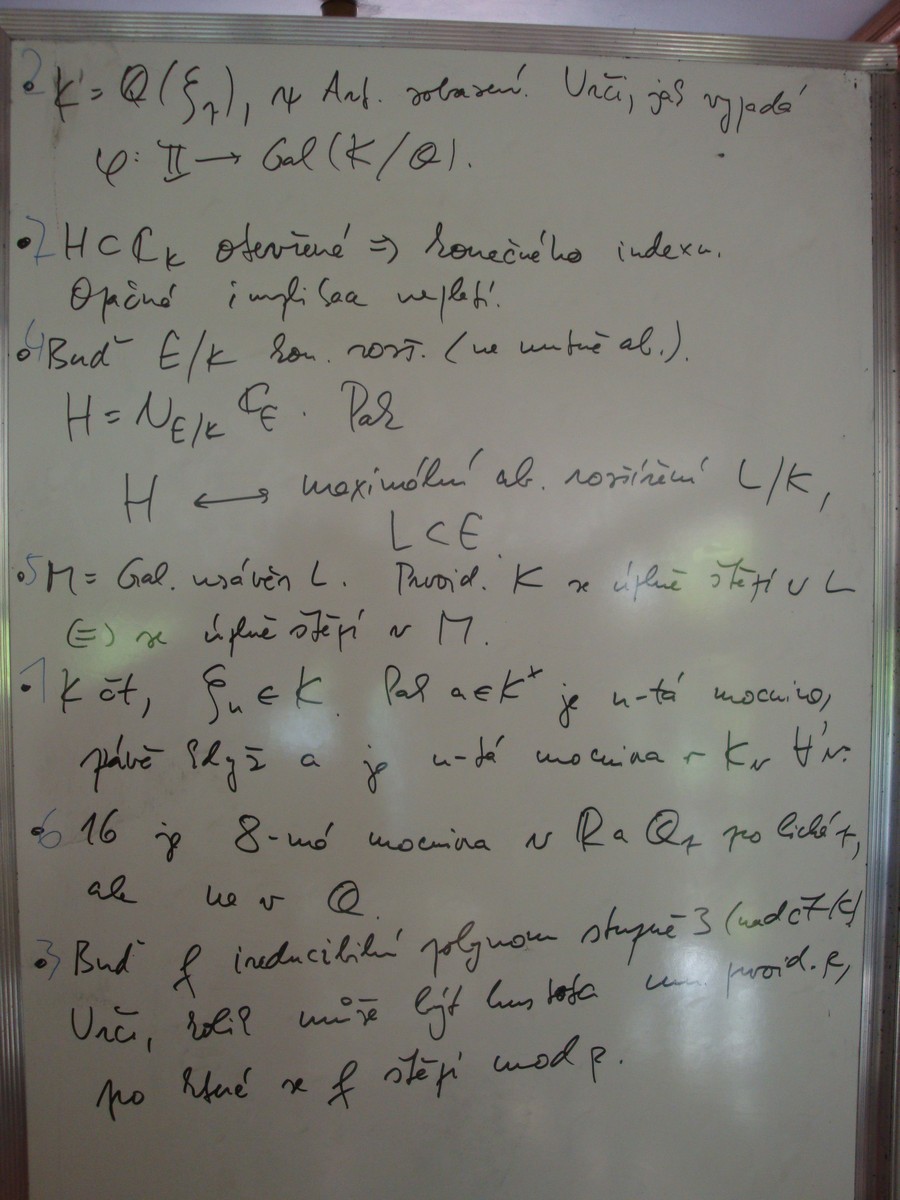 2 • K = Q(ξ_p), ψ Art. zobrazení. Urči, jak vypadá
φ: II → Gal(K/Q).
7 • H ⊂ C_K otevřené ⇒ konečného indexu.
Opačná implikace neplatí.
4 • Buď E/K kon. rozš. (ne nutně ab.).
H = N_{E/K} C_E. Pak
H ↔ maximální ab. rozšíření L/K,
L ⊂ E.
5 • M = Gal. uzávěr L. Prvoid. K se úplně štěpí v L
⇔ se úplně štěpí v M.
1 • K čt, ξ_n ∈ K. Pak a ∈ K^× je n-tá mocnina,
právě když a je n-tá mocnina v K_v ∀'v.
6 • 16 je 8-má mocnina v R a Q_p pro lichá p,
ale ne v Q.
3 • Buď f ireducibilní polynom stupně 3 (nad čt K)
Urči, kolik může být hustota mn. prvoid. p,
po které se f štěpí mod p.